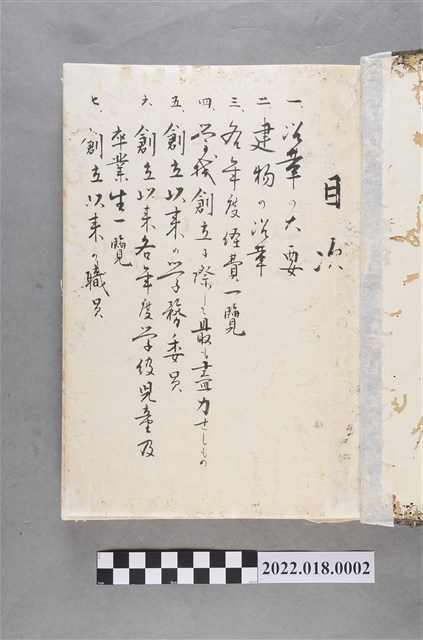 目次
一、沿革ノ大要
二、建物の沿革
三、各年度経費一覧
四、学校創立に際して最も尽力せしもの
五、創立以来の学務委員
六、創立以来各年度学級児童及
卒業生一覧
七、創立以来の職員
2022.018.0002